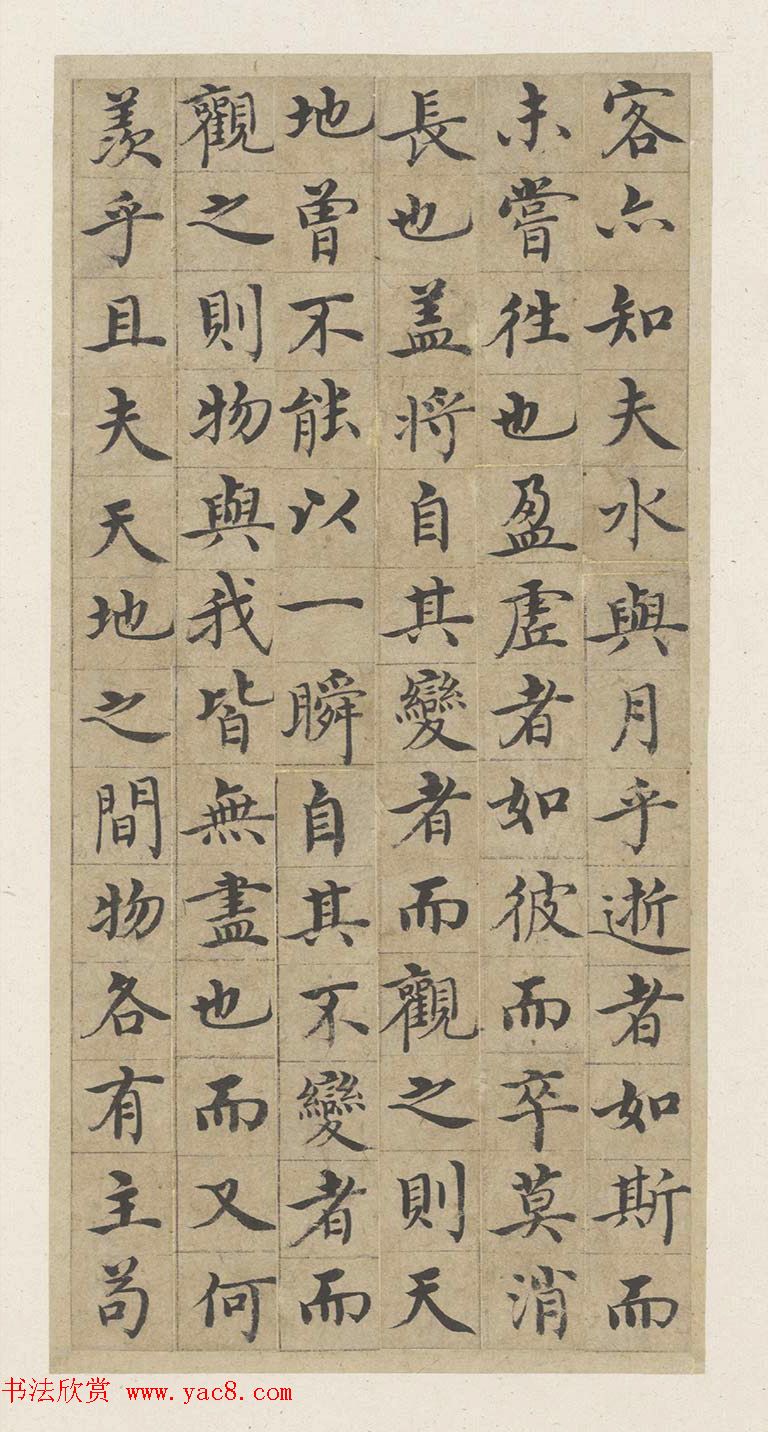 客亦知夫水與月乎逝者如斯而
未嘗往也盈虛者如彼而卒莫消
長也盖將自其變者而觀之則天
地曾不能以一瞬自其不變者而
觀之則物與我皆無盡也而又何
羨乎且夫天地之間物各有主苟
书法欣赏 www.yac8.com